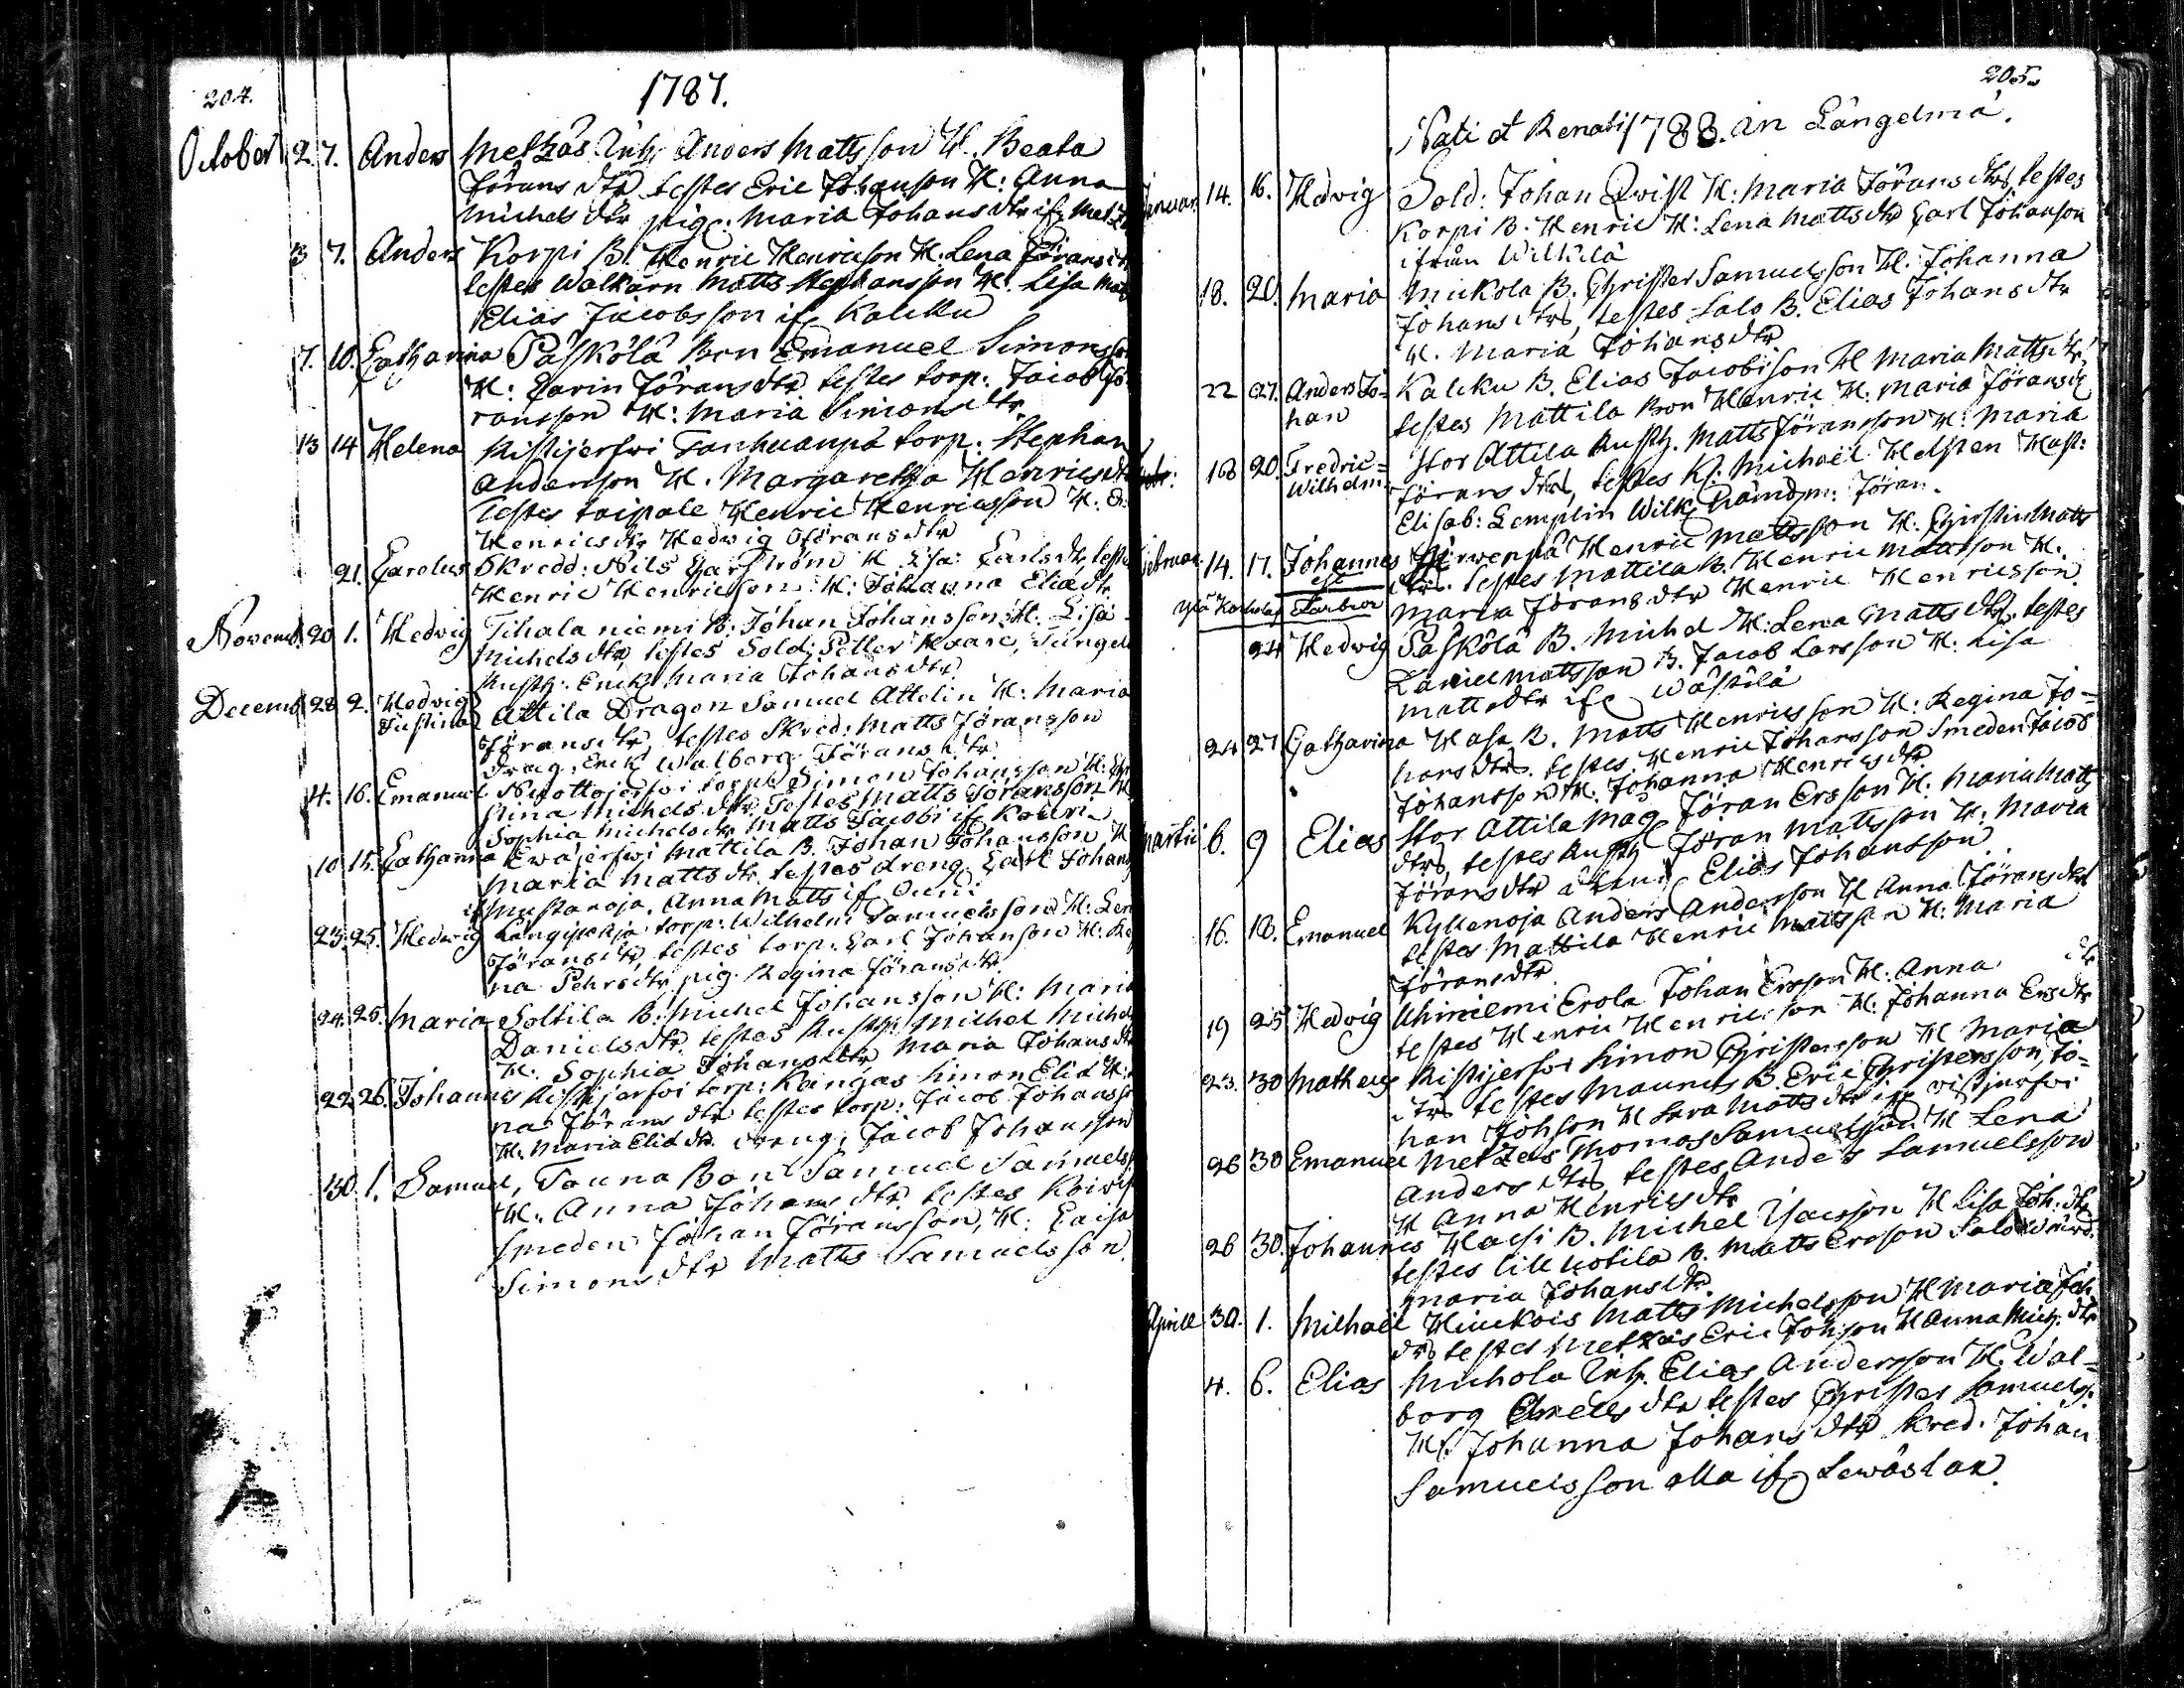 204.
1787.
October 2. 7. Anders Metzäs Inh. Anders Matts son H. Beata
Jörans dtr testes Eric Johanson H: Anna
Michels dtr pig: Maria Johans dtr if
3 7. Anders Korpi B. Henric Henricson H. Lena Jörans
testes Walkärn Matts Stephansson H. Lisa
Elias Jacobsson if Kalcku
7. 10. Catharina Päskölä Bon Emanuel Simonsson
H: Carin Jörans dtr testes torp: Jacob Jö
ransson H: Maria Simons dtr
13 14 Helena Ristijerfwi torp: Stephan
Anderson H. Margaretha Henrics dtr
Testes taipale Henric Henricsson H:
Henrics dtr Hedwig Jörans dtr
21. Carolus Skredd: Nils H Lisa Carls dtr testes
Henric Henricson H: Johanna Eliæ dtr
Novemb. 20 1. Hedwig Tihalaniemi B: Johan Johansson H: Lisa
Michels dtr, testes Sold: Petter
Rusth: Eric Maria Johans dtr
Decemb 28 2. Hedwig
Justina Attila Dragon Samuel Attelin H: Maria
Jörans dtr testes Skred: Matts Jöransson
drag. Eric Walborg Jörans dtr
4. 16. Emanuel torp: Simon Johansson H:
stina Michels dtr Testes Matts Jöransson H
Sophia Michels dtr Matts Jacobi if
10 15. Catharina Ewäjerfwi Mattila B. Johan Johansson H
Maria Matts dtr testes dreng Carl Johans
if Mustanoja. Anna Matts if
23. 25. Hedwig torp: Wilhelm Samuelsson H: Len
Jörans dtr, testes torp: Carl Johanson H: Re
na Pehrs dtr pig. Regina Jörans dtr
24. 25. Maria Soltila B: Michel Johansson H: Maria
Daniels dtr testes Rusth: Michel Michels
H: Sophia Johans dtr Maria Johans dtr
22 26. Johannes Ristijerfwi torp: Kangas Simon Eliæ H:
na Jörans dtr testes torp: Jacob Johansson
H. Maria Eliæ dtr dreng: Jacob Johansson
30. 1. Samuel, Touna Bon Samuel Samuels
H. Anna Johans dtr testes Koiwis
smeden Johan Jöransson, H: Caisa
Simons dtr Matts Samuelsson
205.
Nati et Renati 1788. in Längelmä.
Januar. 14. 16. Hedwig Sold: Johan Qvist H: Maria Jörans dtr, testes
Korpi B. Henric H: Lena Matts dtr Carl Johanson
ifrån Wilkilä
18. 20. Maria Muckola B. Christer Samuelsson H. Johanna
Johans dtr, testes Salo B. Elias Johans dtr
H. Maria Johans dtr
22 27. Anders Jo=
han Kalcku B. Elias Jacobsson H Maria Matts dtr
testes Mattila Bon Henric H. Maria Jörans
18 20. Fredric=
Wilhelm Stor Attila Rusth. Matts Jöransson H: Maria
Jörans dtr, testes Kl: Michael Helsten
Elisab: Lemplin Jöran.
Februar. 14. 17. Johannes Järwenpä Henric Mattsson H. Christin Matts
dtr. testes Mattila B. Henric Mattsson H.
Maria Jörans dtr Henric Henricsson
24 Hedwig Päskölä B. Michel H: Lena Matts dtr testes
Daniel Mattsson B. Jacob Larsson H. Lisa
Matts dtr if Wästilä
24 27 Catharina Hasa B. Matts Henricsson H: Regina Jo=
hans dtr. testes Henric Johansson Smeden Jacob
Johansson H. Johanna Henrics dtr
Martii 6. 9 Elias Stor Attila Mag Jöran Ersson H. Maria Matts
dtr, testes Rusth Jöran Mattsson H: Maria
Jörans dtr Elias Johansson
16. 18. Emanuel Kyllenoja Anders Anderson H Anna Jörans dtr
testes Mattila Henric Mattsson H: Maria
Jörans dtr
19 25 Hedwig Uhiniemi Erola Johan Ersson H: Anna dtr
testes Henric Henricsson H: Johanna Ers dtr
23. 30 Matheus Ristijerfwi Simon Christersson H Maria
dtr testes Maunus B. Eric Christersson, Jo=
han Johson H Sara Matts dtr if ristijerfwi
26 30 Emanuel Metzäs Thomas Samuelsson H Lena
Anders dtr testes Anders Samuelsson
H Anna Henrics dtr
26 30. Johannes Hassi B. Michel H Lisa Joh: dtr
testes lill kotila B. Matts Ersson
Maria Johans dtr
Aprill 30. 1. Michael Hiuckois Matts Michelsson H Maria Joh.
dtr testes Metzäs Eric Johson H Anna Mich: dtr
4. 6. Elias Muckola Inh. Elias Andersson H. Wal=
borg dtr testes Christer Samuels.
H. Johanna Johans dtr Skred. Johan
Samuelsson alla if Lewäslax